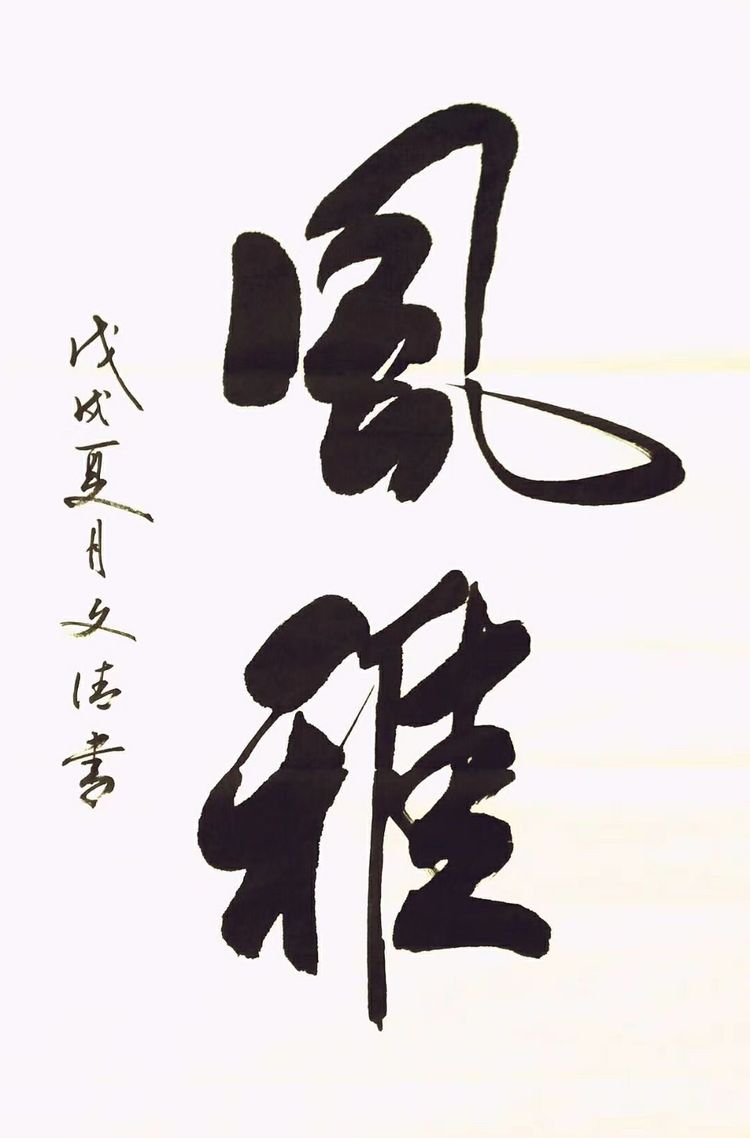 風雅
戊戌夏月文清书